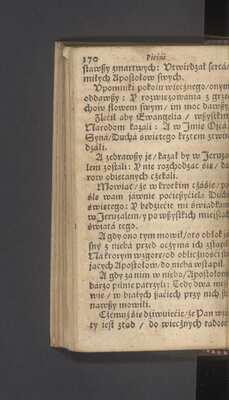 170 Pieśni
stawszy zmartwych: Utwierdzał serca/
miłych Apostołow swych.
Upominki pokoiu wiecznego/onym
oddawszy: Y rozwiązowania z grze-
chow słowem swym/ im moc dawszy.
Zlecił aby Ewangelią/ wszystkim
Narodom kazali: A w Jmię Oyca
Syna/Ducha świętego krztem
dzáli.
A zebrawszy ie/ kazał by w Jeruza-
lem zostali: Y nie rozchodząc się/ da-
row obiecanych czekali.
Mowiąc/ że w krotkim czásie/ po-
ślę wam jawnie pocieszyciela Duchá
świętego: Y będziecie mi świadkami
w Jeruzalem/ po wszystkich mieyscách
świátá tego.
A gdy ono tym mowił/oto obłok ja-
sny z nieba przed oczyma ich zstąpił
Ná ktorym wzgorę/od obliczności sto-
jących Apostołow/ do niebá wstąpił.
A gdy zá nim w niebo/ Apostołowie
bárzo pilnie patrzyli: Tedy dwa mę-
wie/ w białych száciech przy nich sta-
nawszy mowili.
Czemu się dziwuiecie/ że Pan wzię-
ty iest ztąd/ do wiecznych radości